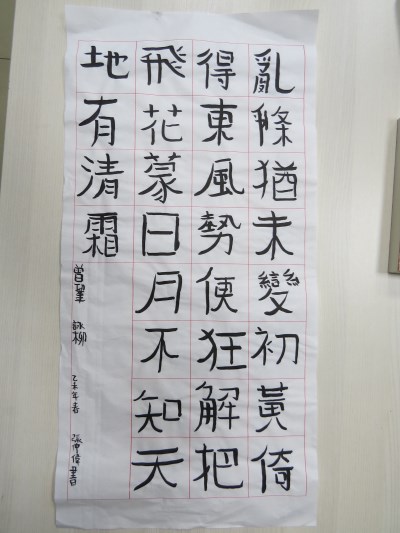 亂條猶未變初黃倚
得東風勢便狂解把
飛花蒙日月不知天
地有清霜
曾鞏 詠柳 乙未年春 張仲倫書